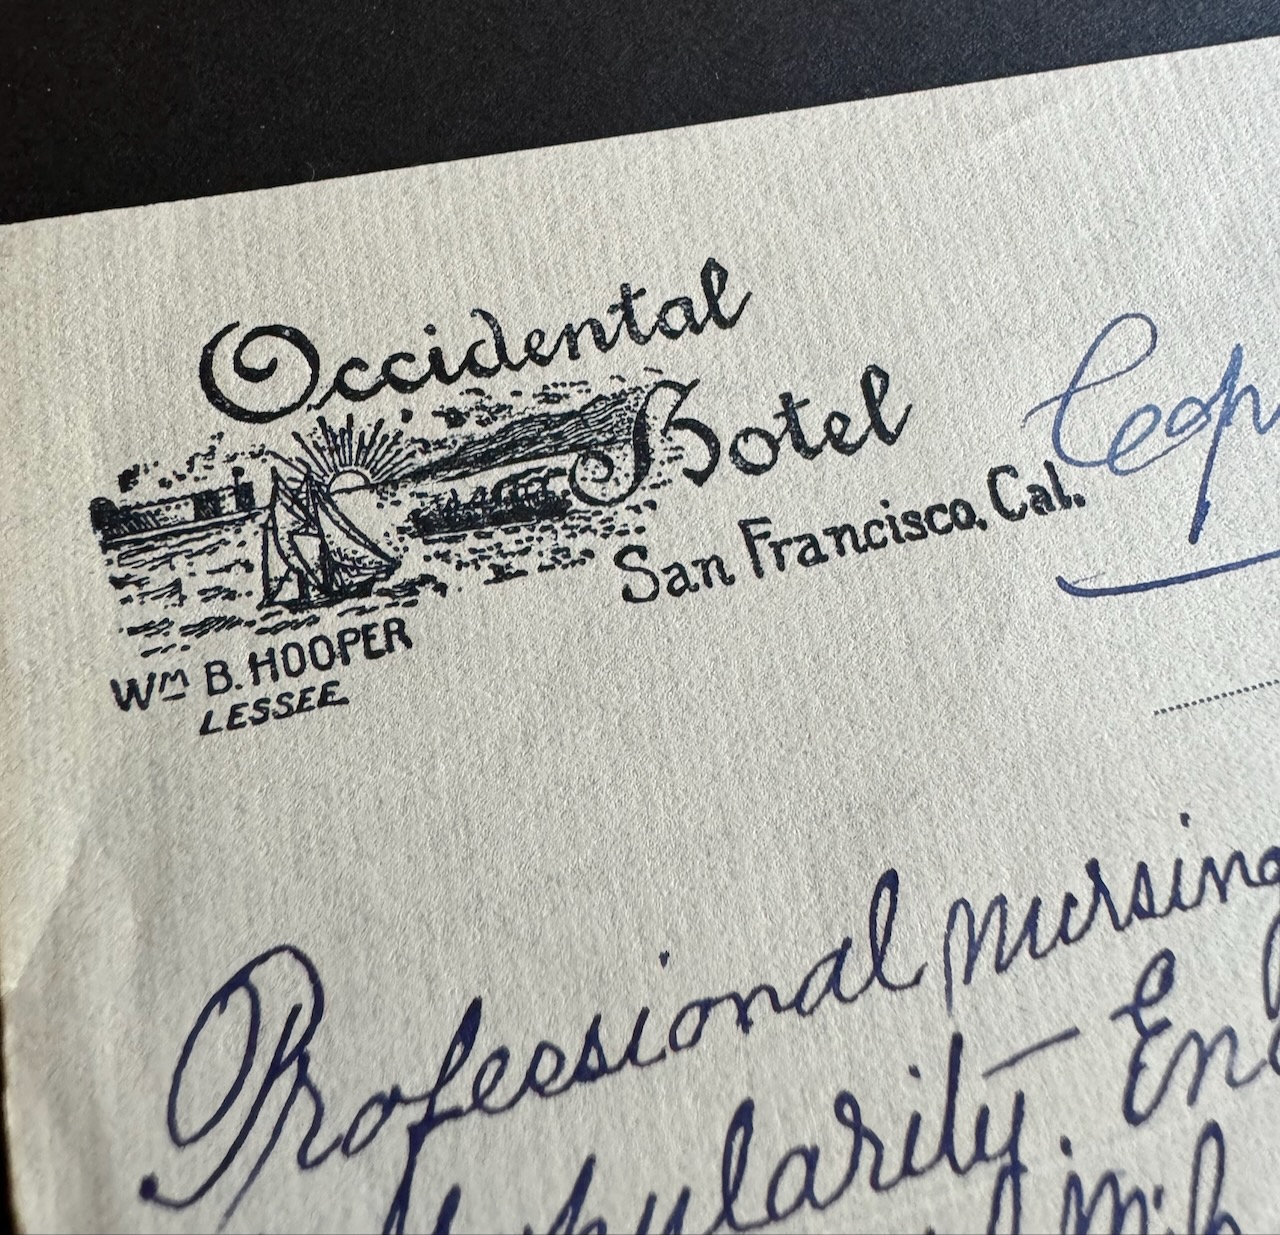 Occidental
Hotel
San Francisco, Cal.
Wm B. HOOPER
LESSEE
Professional nursing